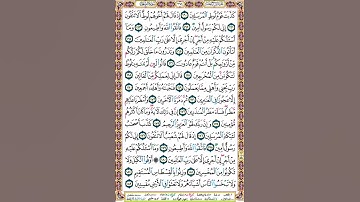 كَذَّبَتْ قَوْمُ لُوطٍ الْمُرْسَلِينَ إِذْ قَالَ لَهُمْ أَخُوهُمْ لُوطٌ أَلَا تَتَّقُونَ
إِنِّي لَكُمْ رَسُولٌ أَمِينٌ فَاتَّقُوا اللَّهَ وَأَطِيعُونِ وَمَا
أَسْـَٔلُكُمْ عَلَيْهِ مِنْ أَجْرٍ إِنْ أَجْرِيَ إِلَّا عَلَىٰ رَبِّ الْعَـٰلَمِينَ
أَتَأْتُونَ الذُّكْرَانَ مِنَ الْعَـٰلَمِينَ وَتَذَرُونَ مَا خَلَقَ لَكُمْ رَبُّكُمْ
مِنْ أَزْوَٰجِكُمْ بَلْ أَنْتُمْ قَوْمٌ عَادُونَ قَالُوا لَئِنْ لَمْ تَنْتَهِ يَـٰلُوطُ
لَتَكُونَنَّ مِنَ الْمُخْرَجِينَ قَالَ إِنِّي لِعَمَلِكُمْ مِنَ الْقَالِينَ
رَبِّ نَجِّنِي وَأَهْلِي مِمَّا يَعْمَلُونَ فَنَجَّيْنَـٰهُ وَأَهْلَهُ أَجْمَعِينَ
إِلَّا عَجُوزًا فِي الْغَـٰبِرِينَ ثُمَّ دَمَّرْنَا الْـَٔاخَرِينَ وَأَمْطَرْنَا
عَلَيْهِمْ مَطَرًا فَسَاءَ مَطَرُ الْمُنْذَرِينَ إِنَّ فِي ذَٰلِكَ لَـَٔايَةً وَمَا كَانَ أَكْثَرُهُمْ
مُؤْمِنِينَ وَإِنَّ رَبَّكَ لَهُوَ الْعَزِيزُ الرَّحِيمُ كَذَّبَ أَصْحَـٰبُ
لْـَٔيْكَةِ الْمُرْسَلِينَ إِذْ قَالَ لَهُمْ شُعَيْبٌ أَلَا تَتَّقُونَ إِنِّي لَكُمْ
رَسُولٌ أَمِينٌ فَاتَّقُوا اللَّهَ وَأَطِيعُونِ وَمَا أَسْـَٔلُكُمْ عَلَيْهِ
مِنْ أَجْرٍ إِنْ أَجْرِيَ إِلَّا عَلَىٰ رَبِّ الْعَـٰلَمِينَ أَوْفُوا الْكَيْلَ وَلَا
تَكُونُوا مِنَ الْمُخْسِرِينَ وَزِنُوا بِالْقِسْطَاسِ الْمُسْتَقِيمِ
وَلَا تَبْخَسُوا النَّاسَ أَشْيَاءَهُمْ وَلَا تَعْثَوْا فِي الْأَرْضِ مُفْسِدِينَ